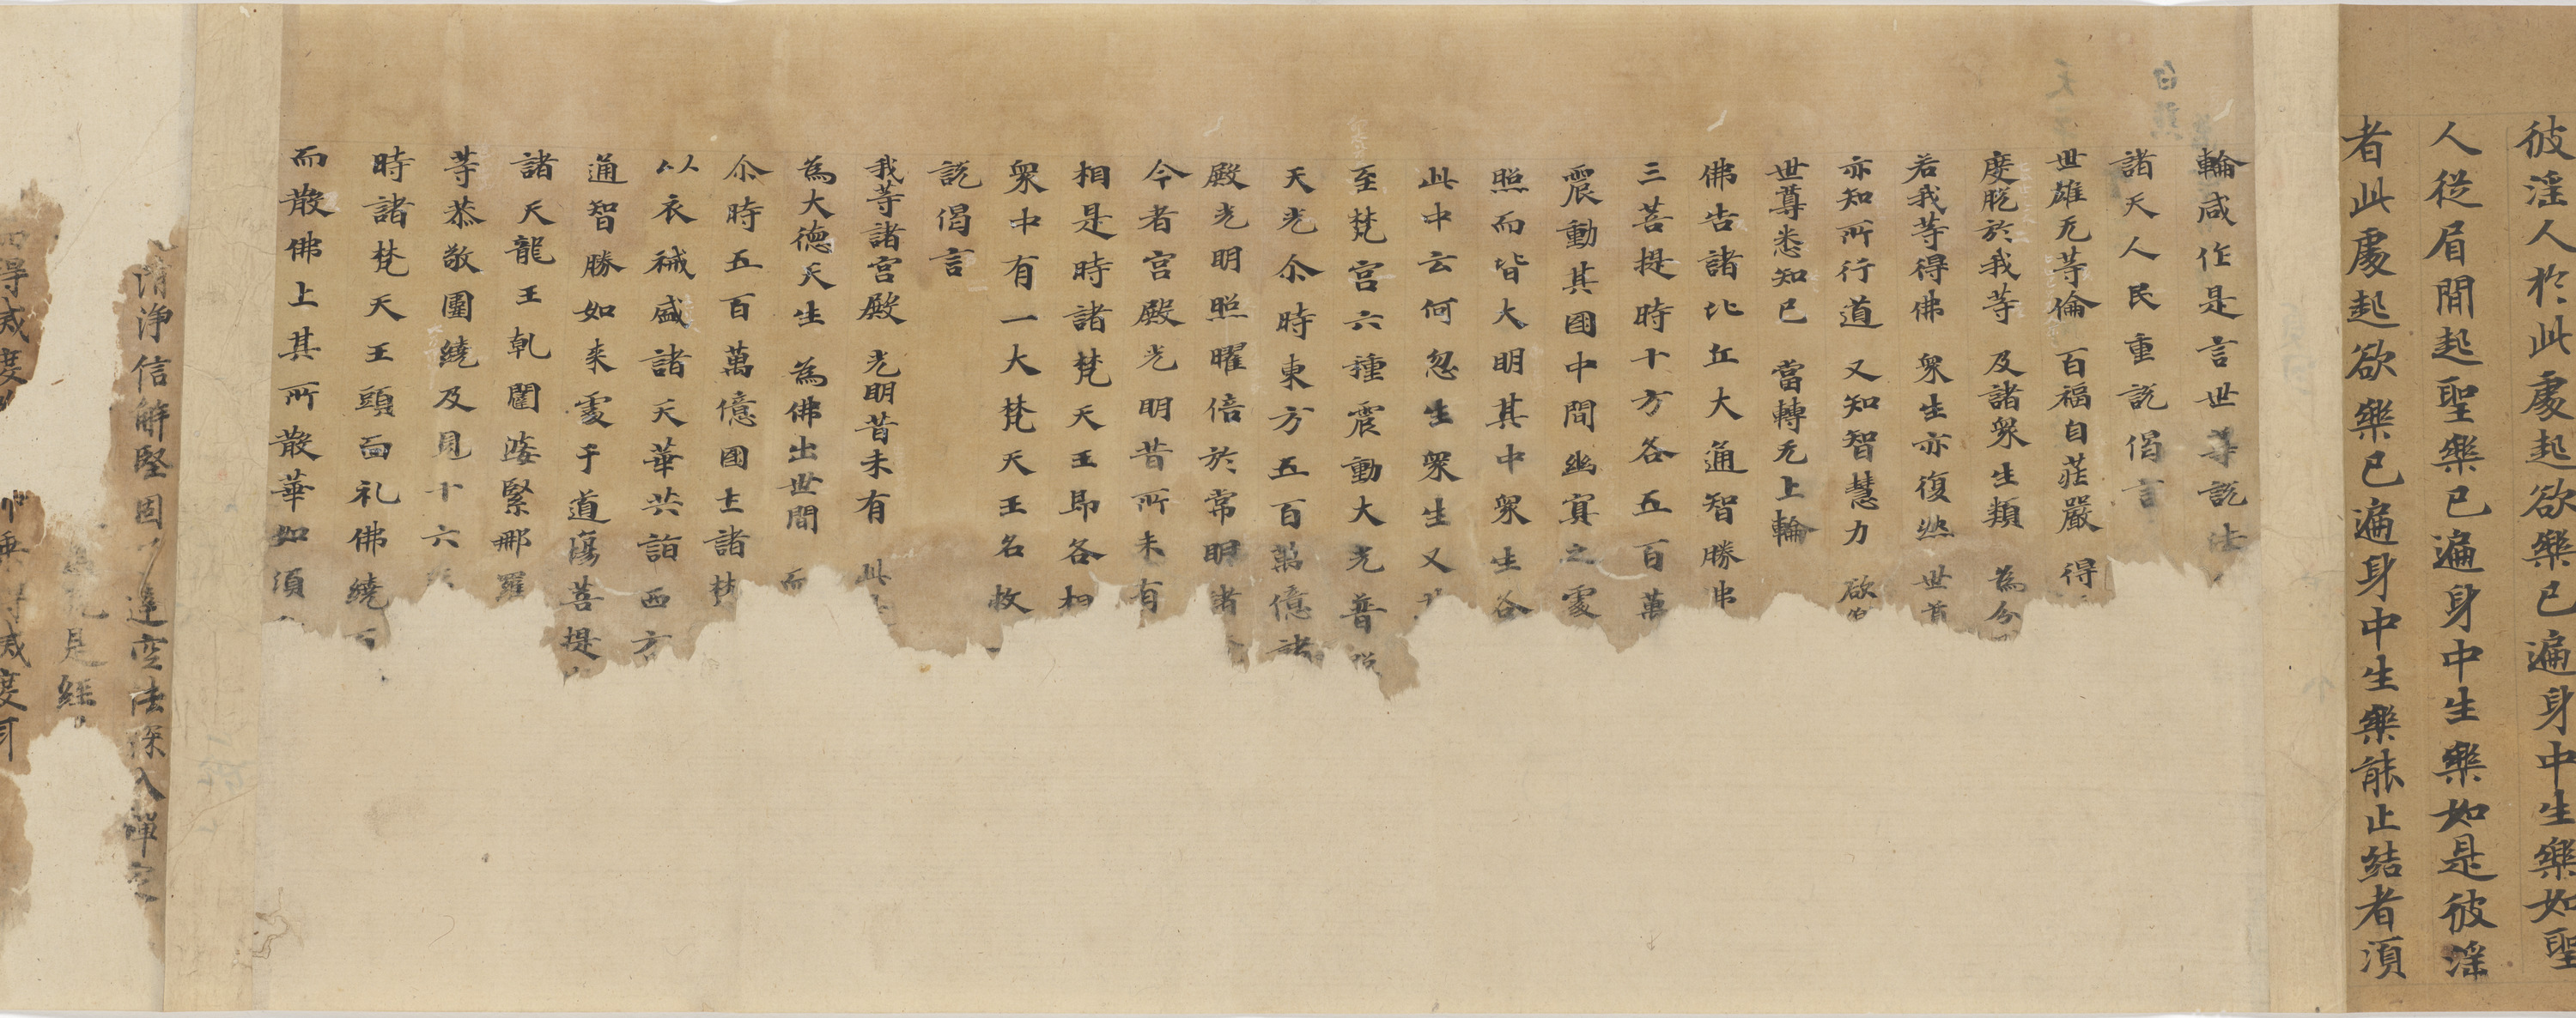 彼淫人於此處起欲樂已遍身中生樂如聖
人從眉間起聖樂已遍身中生樂如是彼淫
者此處起欲樂已遍身中生樂能止結者須
輪咸作是言世尊說法
諸天人民重說偈言
世雄无等倫 百福自莊嚴 得
度脫於我等 及諸衆生類 為分
若我等得佛 衆生亦復然 世尊
亦知所行道 又知智慧力 欲
世尊悉知已 當轉无上輪
佛告諸比丘大通智勝
三菩提時十方各五百萬
震動其國中間幽冥之處
照而皆大明其中衆生各
此中云何忽生衆生又
至梵宮六種震動大光普
天光尒時東方五百萬億諸
殿光明照曜倍於常明諸
今者宮殿光明昔所未有
相是時諸梵天王即各相
衆中有一大梵天王名救
說偈言
我等諸宮殿 光明昔未有 此
為大德天生 為佛出世間 而
尒時五百萬億國土諸梵
以衣祴盛諸天華共詣西方
通智勝如来處于道場菩提
諸天龍王乹闥婆緊那羅
等恭敬圍繞及見十六
時諸梵天王頭面礼佛繞百
而散佛上其所散華如須
清淨信解堅固了達空法深入禪定
為說是經
得滅度
乘得滅度耳